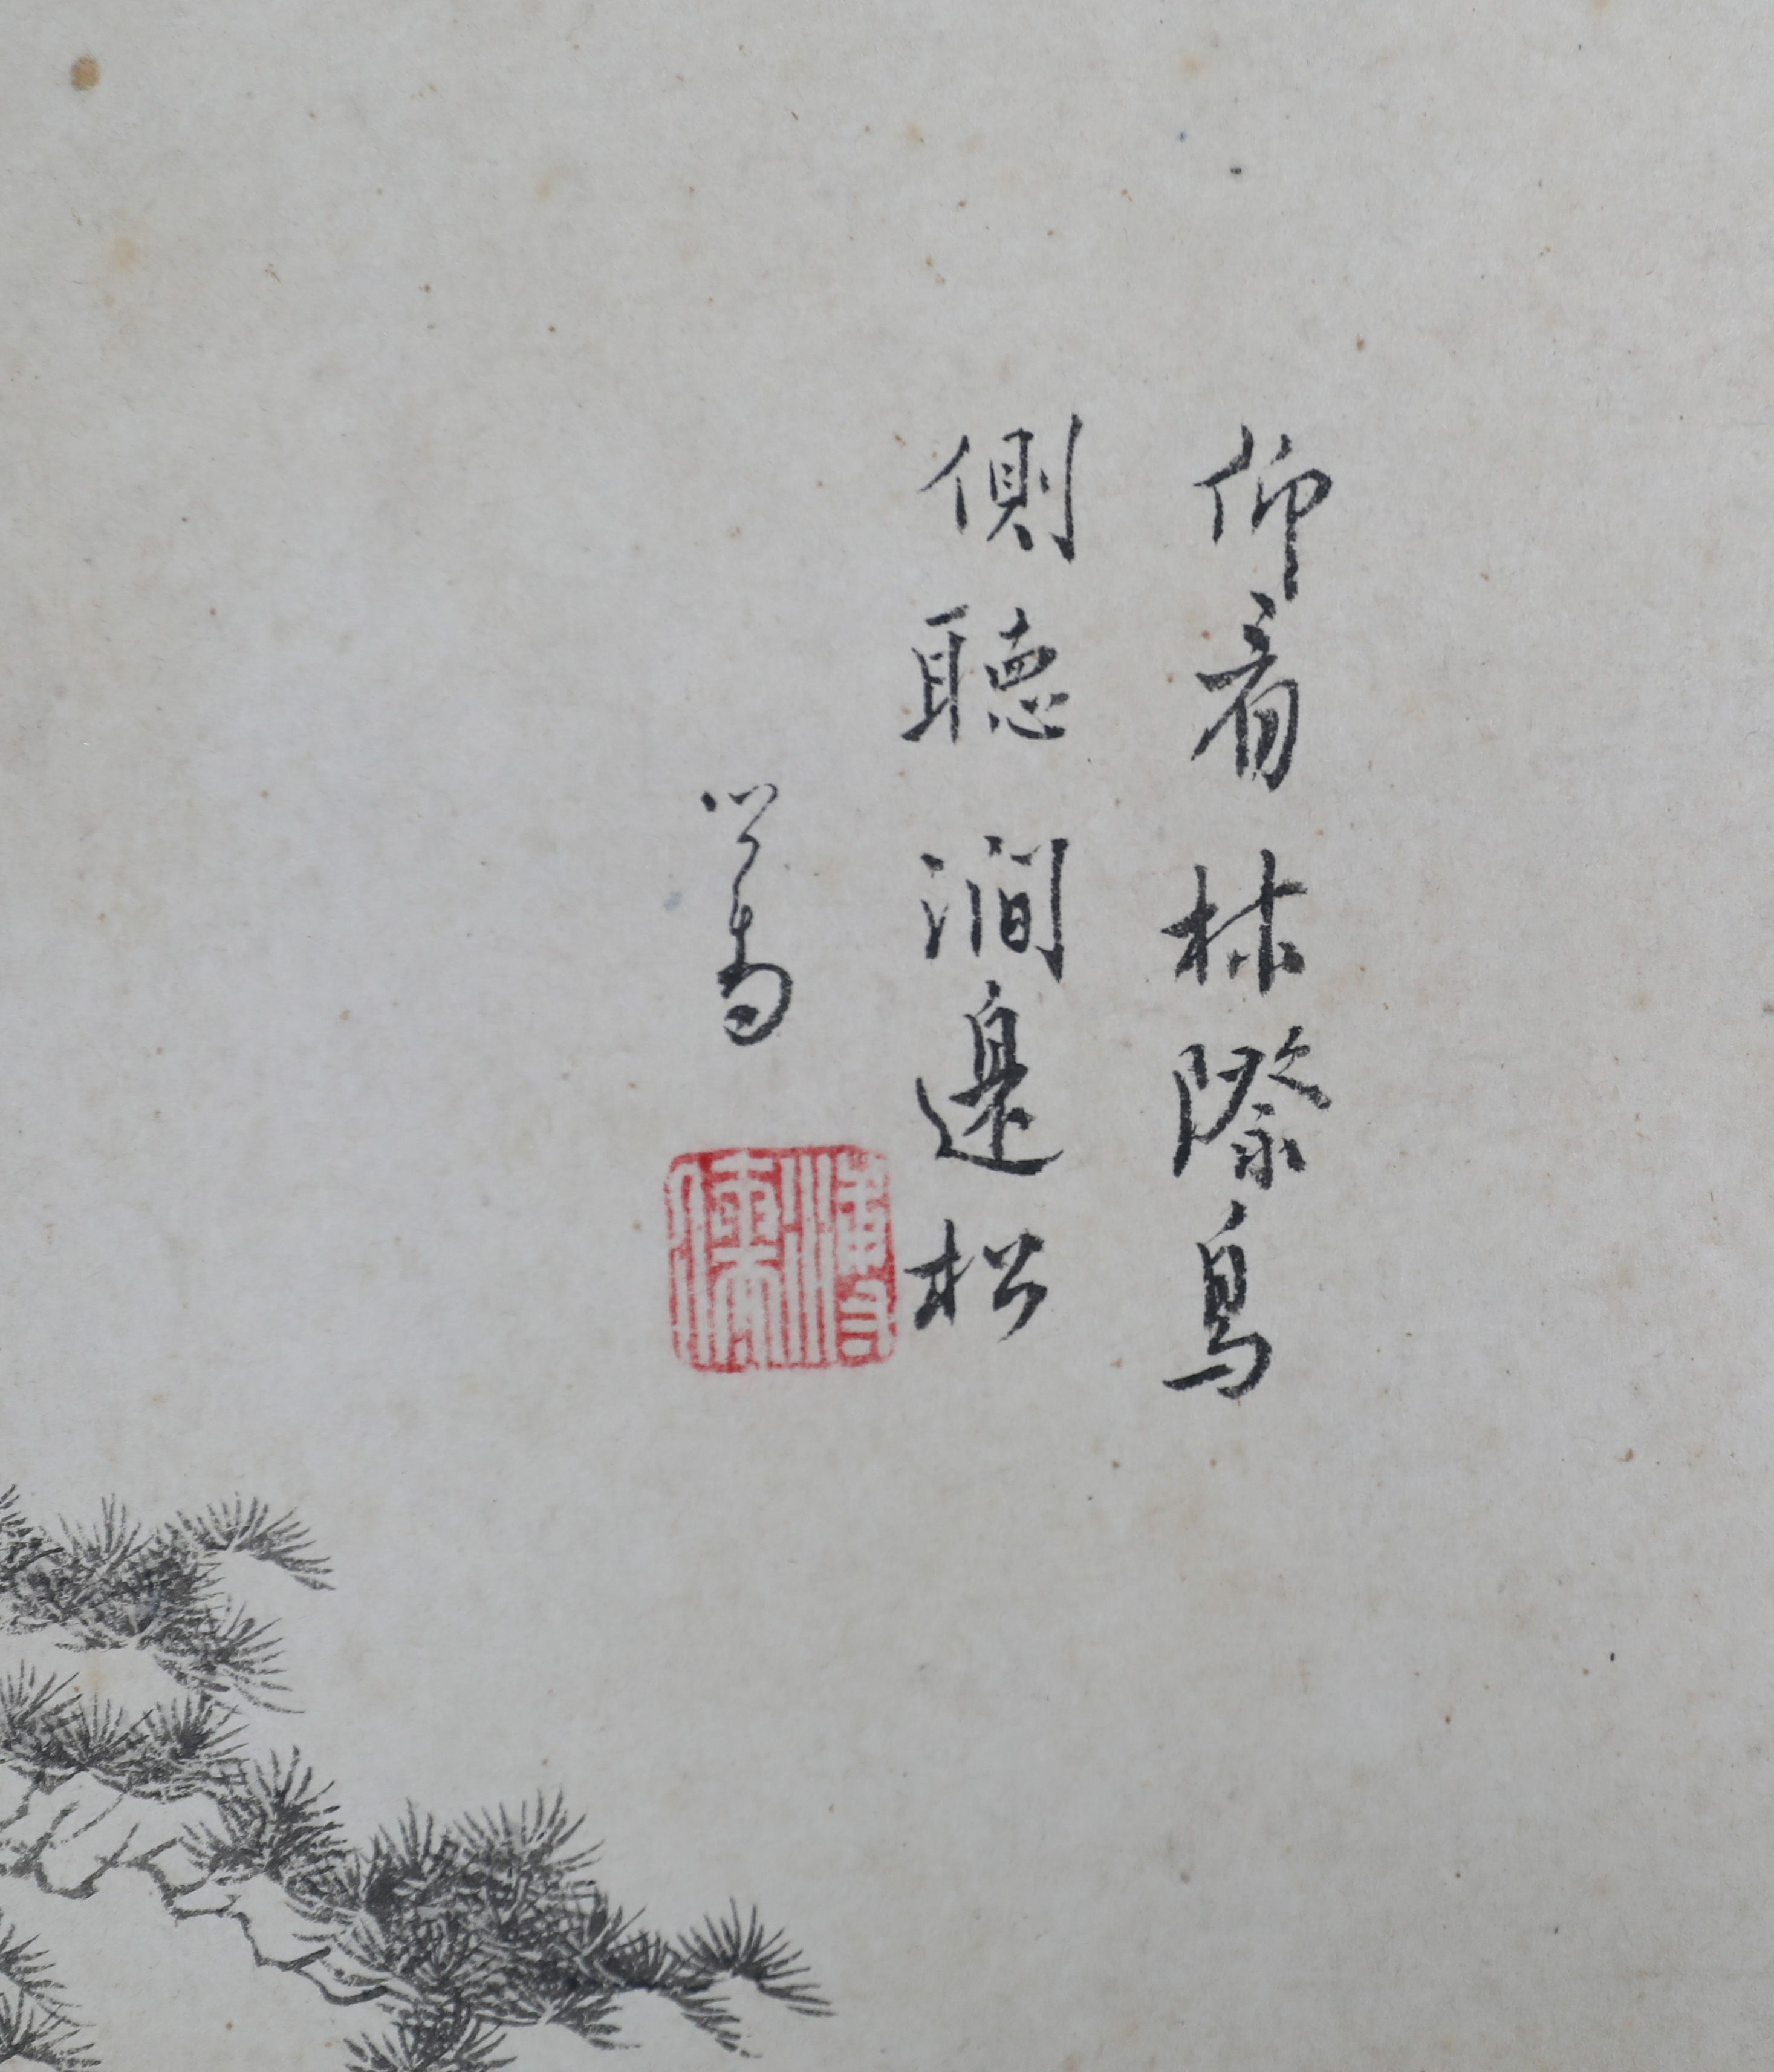 仰看林際鳥
側聽澗邊松
心畬
溥儒